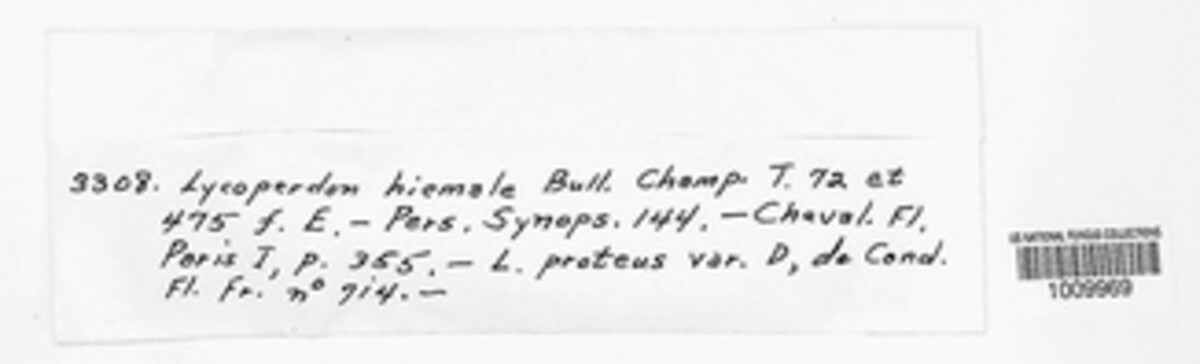 3308. Lycoperdon hiemale Bull. Champ. T. 72 et
475 f. E. — Pers. Synops. 144. — Cheval. Fl.
Paris I, p. 355. — L. proteus var. D, de Cand.
Fl. Fr. nº 714. —
US NATIONAL FUNGUS COLLECTIONS
1009969